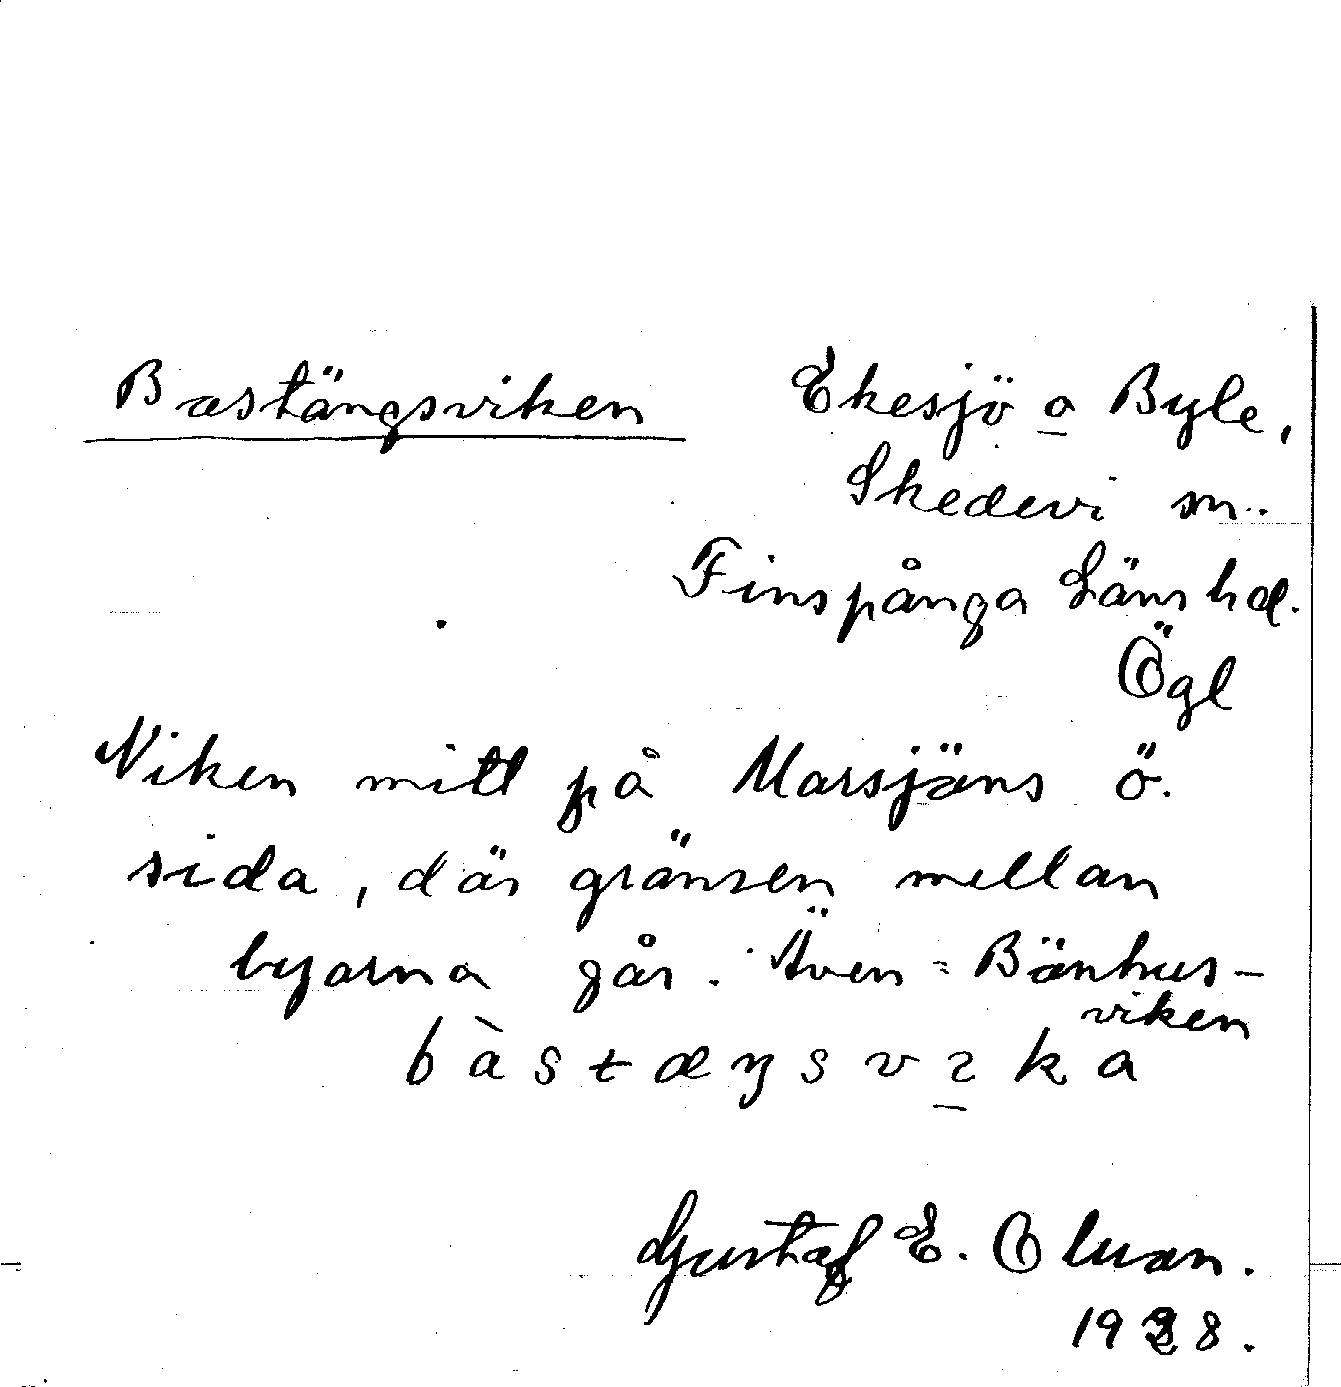 Bastängsviken Ekesjö o Byle,
Skedevi sn.
Finspånga Läns hd.
Ögl
Viken mitt på Marsjäns ö.
sida, där gränsen mellan
byarna går. Även = Bänhus-
viken
bàstæŋsvika
Gustaf E.